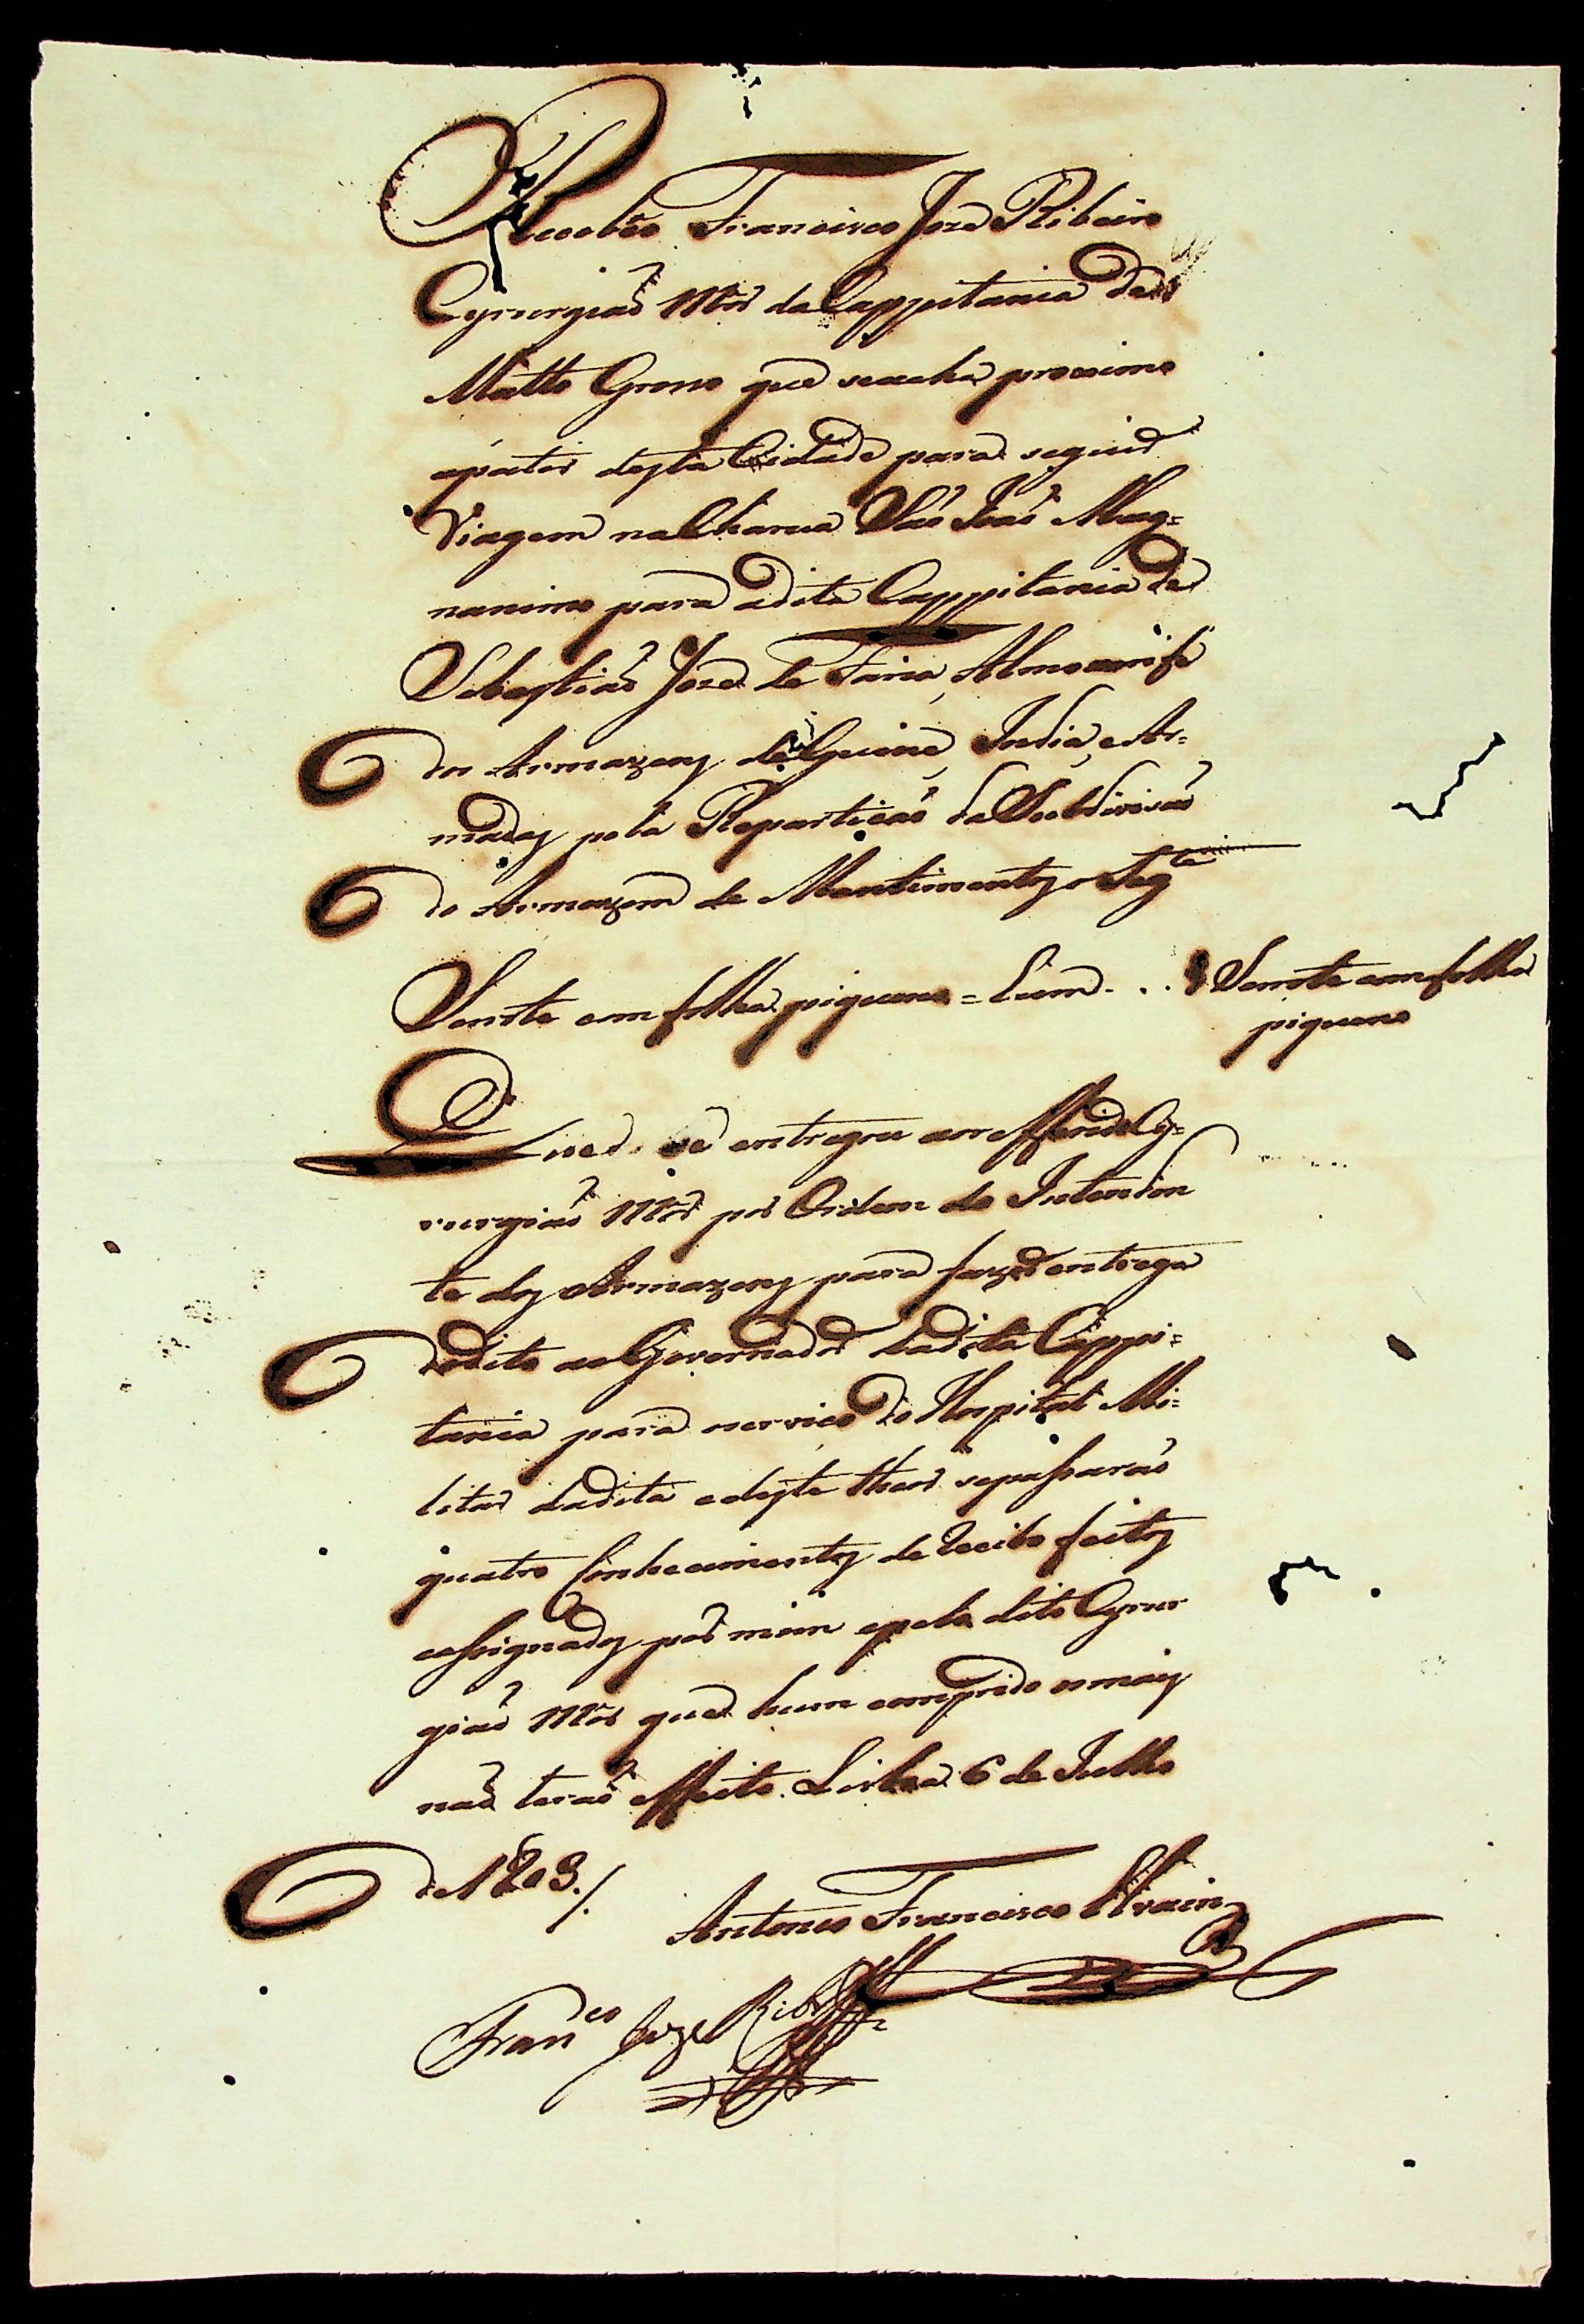 Recebêo Francisco Joze Ribeiro
Cyrurgiaõ Mór da Cappitania de
Matto Groso que seacha proximo
apartir desta Cidade para seguir
Viagem na Charua Saõ Joaõ Mag=
nanimo para adita Cappitania de
Sebastiaõ Joze de Faria, Almoxarife
dos Armazens de Guiné, India, e Ar=
madas pela Repartiçaõ da Subdivisaõ
do Armazem de Mantimentos o Seg.te
Senete em folha piqueno = hum . . Senete em folha
piqueno
Que se entregou ao refferido Cy=
rurgiaõ Mór por Ordem do Intenden
te dos Armazens para fazer entrega
do dito ao Governador da dita Cappi=
tania para o serviço do Hospital Mi=
litar da dita e deste theor se passaraõ
quatro Conhecimentos de recibo feitos
e assignados por mim e pelo dito Cyrur
giaõ Mór que hum comprido os mais
naõ teraõ effeito. Lisboa 6 de Julho
de 1803./
Antonio Francisco
Fran.co Joze Rib.ro